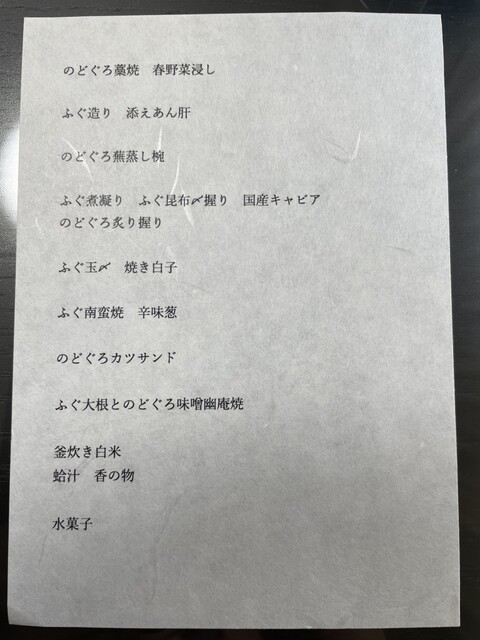 のどぐろ藁焼　春野菜浸し
ふぐ造り　添えあん肝
のどぐろ蕪蒸し椀
ふぐ煮凝り　ふぐ昆布〆握り　国産キャビア
のどぐろ炙り握り
ふぐ玉〆　焼き白子
ふぐ南蛮焼　辛味葱
のどぐろカツサンド
ふぐ大根とのどぐろ味噌幽庵焼
釜炊き白米
蛤汁　香の物
水菓子